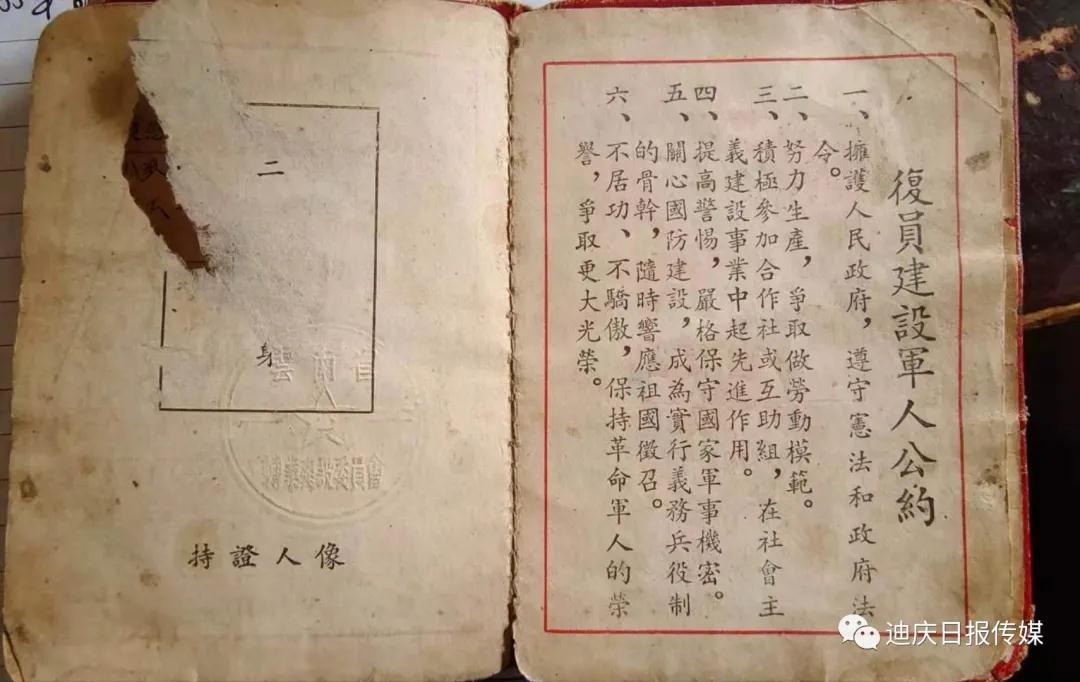 復員建設軍人公約
一、擁護人民政府，遵守憲法和政府法
令。
二、努力生產，爭取做勞動模範。
三、積極參加合作社或互助組，在社會主
義建設事業中起先進作用。
四、提高警惕，嚴格保守國家軍事機密。
五、關心國防建設，成為實行義務兵役制
的骨幹，隨時響應祖國徵召。
六、不居功、不驕傲，保持革命軍人的榮
譽，爭取更大光榮。
二
身
雲南省
委員會
持證人像
迪庆日报传媒